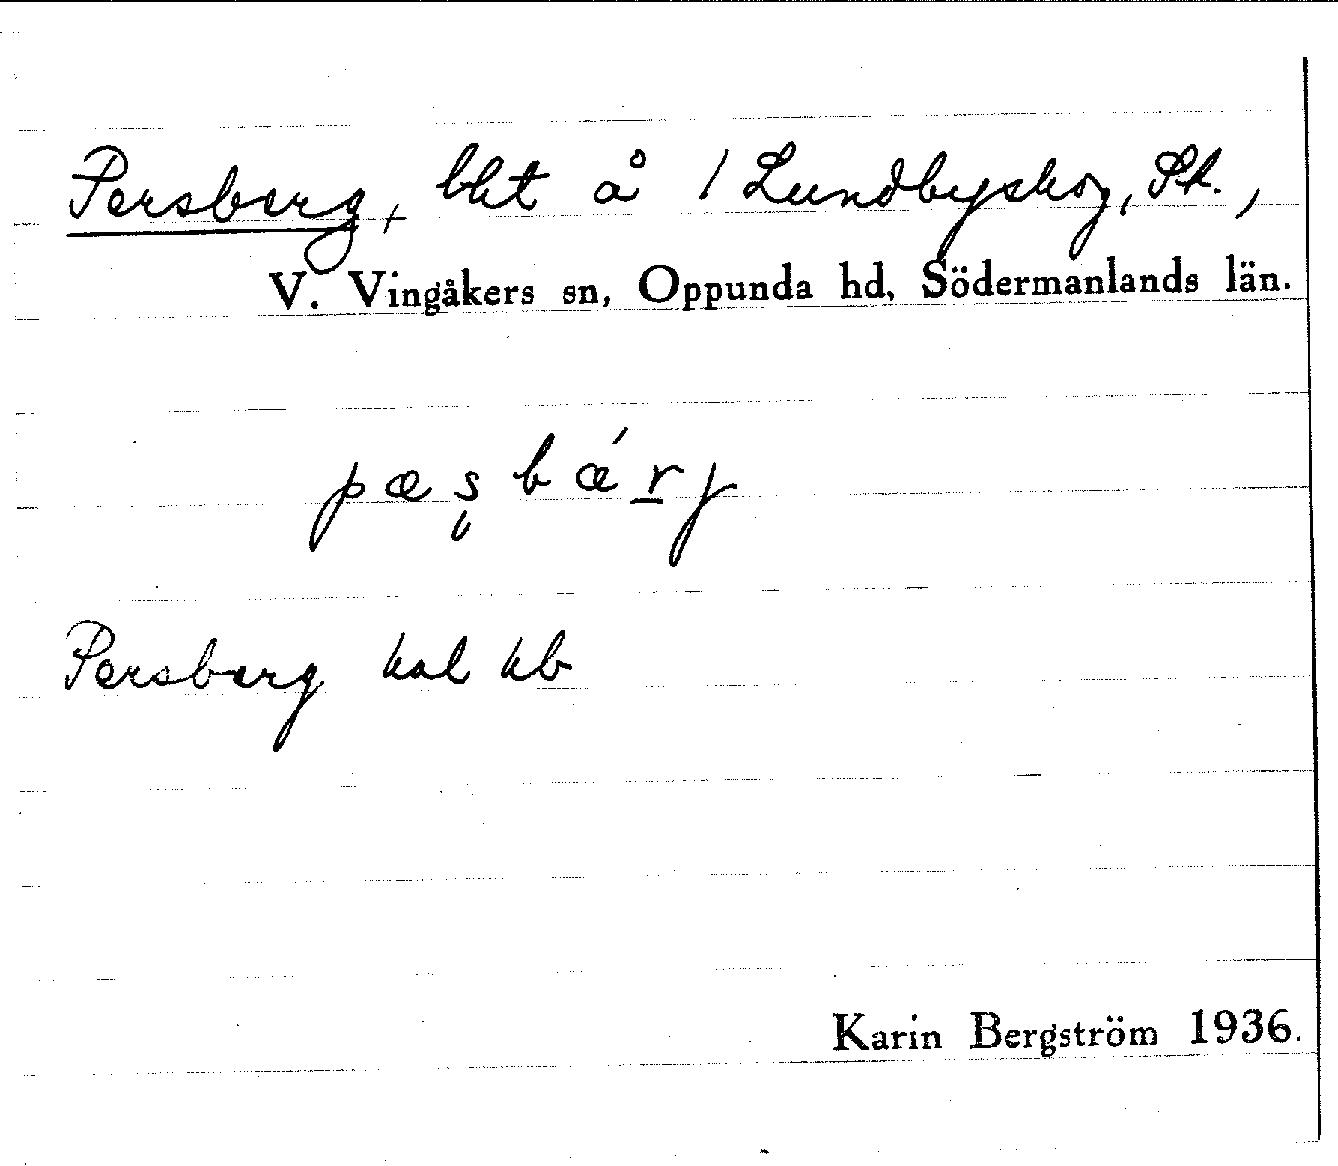 Persberg, bht å 1 Lundbyskog, Sk.,
V. Vingåkers sn, Oppunda hd, Södermanlands län.
pæșbǽr̲j
Persberg hal hb
Karin Bergström 1936.